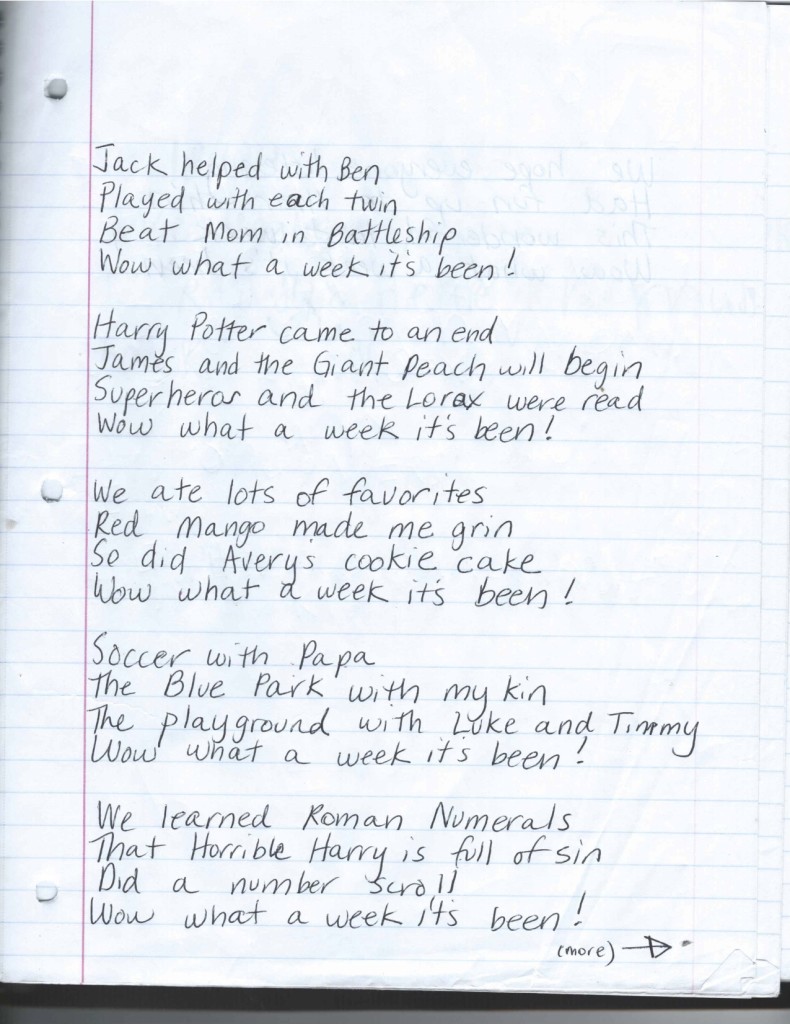 Jack helped with Ben
Played with each twin
Beat Mom in Battleship
Wow what a week it's been!
Harry Potter came to an end
James and the Giant Peach will begin
Superheros and the Lorax were read
Wow what a week it's been!
We ate lots of favorites
Red Mango made me grin
So did Avery's cookie cake
Wow what a week it's been!
Soccer with Papa
The Blue Park with my kin
The playground with Luke and Timmy
Wow what a week it's been!
We learned Roman Numerals
That Horrible Harry is full of sin
Did a number scroll
Wow what a week it's been!
(more) →